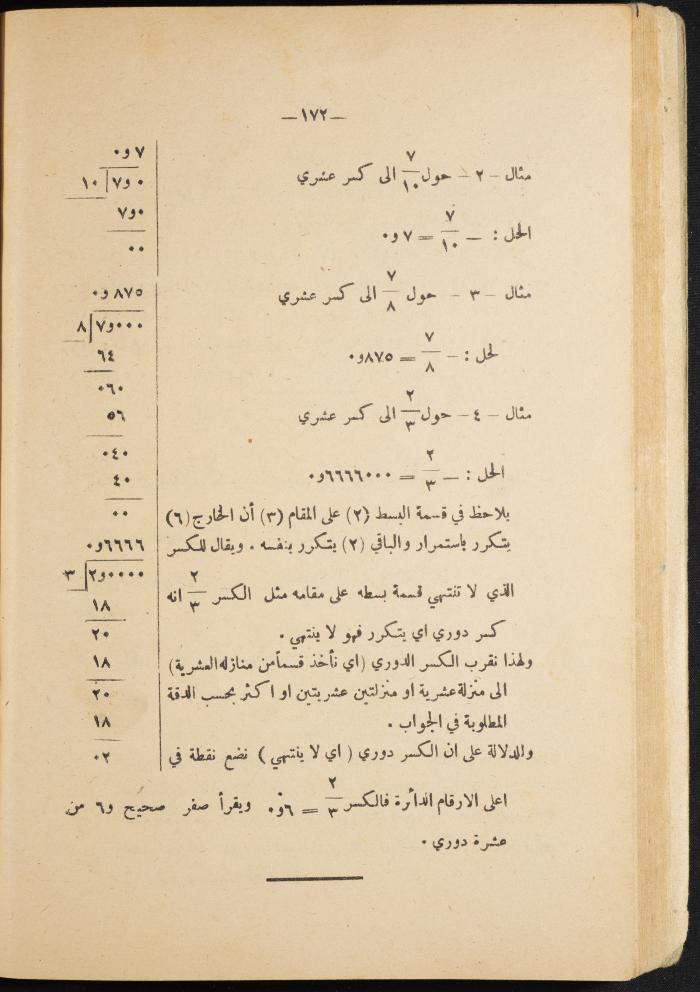 —١٧٢—
مثال – ٢ – حول ٧/١٠ الى كسر عشري
الحل : – ٧/١٠ = ٧و٠
مثال – ٣ – حول ٧/٨ الى كسر عشري
لحل : – ٧/٨ = ٨٧٥و٠
مثال – ٤ – حول ٢/٣ الى كسر عشري
الحل : – ٢/٣ = ٠٠٠٦٦٦٦و٠
يلاحظ في قسمة البسط (٢) على المقام (٣) أن الخارج (٦)
يتكرر باستمرار والباقي (٢) يتكرر بنفسه . ويقال للكسر
الذي لا تنتهي قسمة بسطه على مقامه مثل الكسر ٢/٣ انه
كسر دوري اي يتكرر فهو لا ينتهي .
ولهذا نقرب الكسر الدوري (اي نأخذ قسماً من منازله العشرية)
الى منزلة عشرية او منزلتين عشريتين او اكثر بحسب الدقة
المطلوبة في الجواب .
والدلالة على ان الكسر دوري ( اي لا ينتهي ) نضع نقطة في
اعلى الارقام الدائرة فالكسر ٢/٣ = ٦و٠ ويقرأ صفر صحيح و٦ من
عشرة دوري .
٧و٠
٠و٧ ١٠
٠و٧
٠٠
٨٧٥و٠
٠٠٠و٧ ٨
٦٤
٠٦٠
٥٦
٠٤٠
٤٠
٠٠
٦٦٦٦و٠
٠٠٠٠و٢ ٣
١٨
٢٠
١٨
٢٠
١٨
٠٢